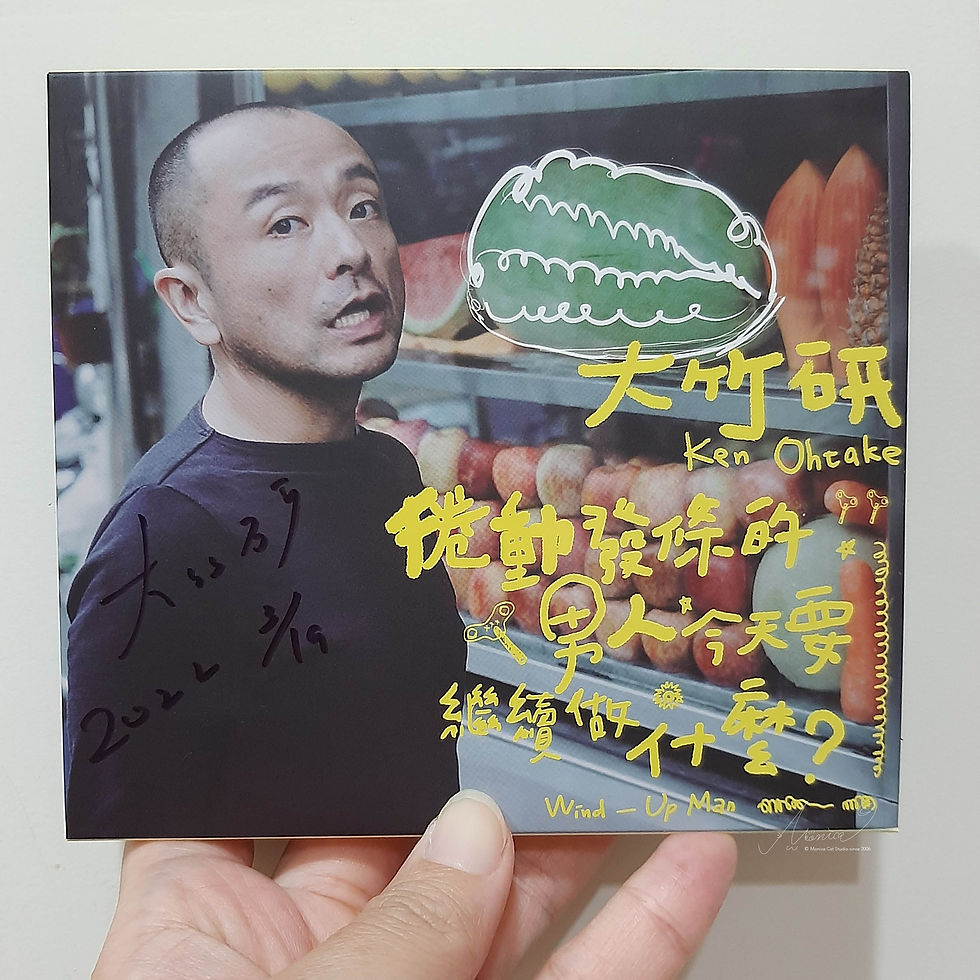 大竹研
Ken Ohtake
捲動發條的
男人今天要
繼續做什麼？
Wind-Up Man
大竹研
2022 3/19
Monica
© Monica Cat Studio since 2006